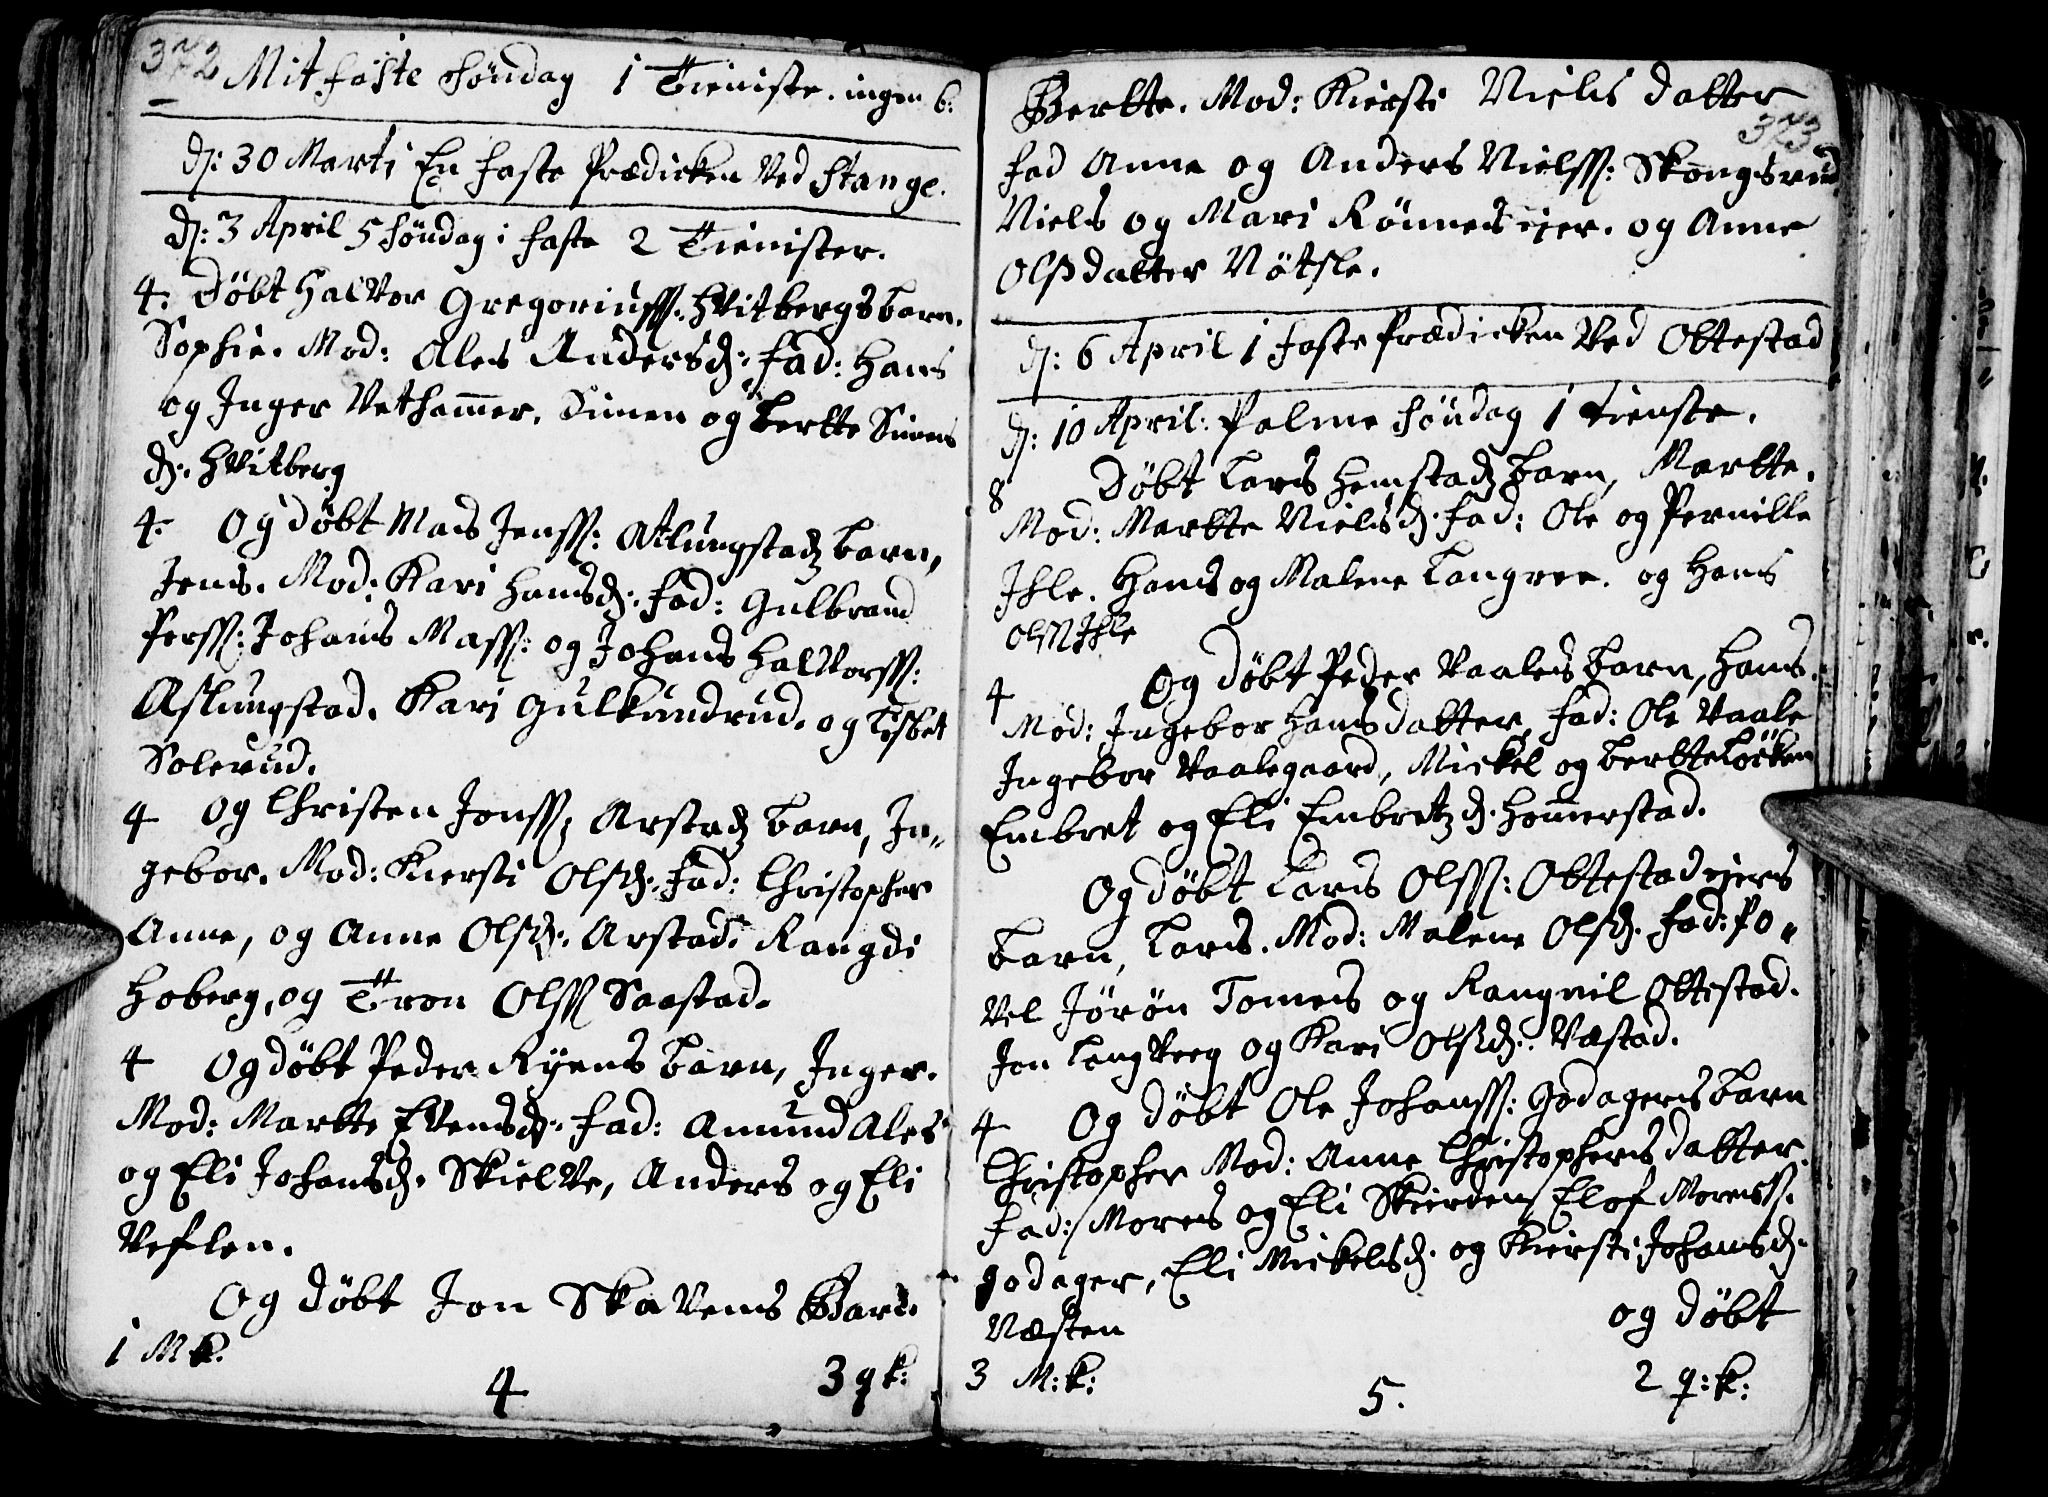 372
Mit faste Söndag 1 Tieniste. ingen 6.
d: 30 Marti En faste Prædicken Ved Stange.
d: 3 April 5 Söndag i faste 2 Tienister.
4. Döbt Halvor Gregoriuss: Hvitbergs barn.
Sophie. Mod: Ales Andersd: fad: Hans
og Inger Vethammer. Simen og bertte Simens
d: Hvitberg
4. Og döbt Mads Jenss: Atlungstad barn,
Jens. Mod: Kari Hansd: fad: Gulbrand
Perss: Johans Mass: og Johans Halvorss:
Aslungstad. Kari Gulkundrud. og Lisbet
Solerud.
4 og Christen Jonss: Arstad barn, In„
gebor. Mod: Kiersti Olsd: fad: Christopher
Anne, og Anne Olsd: Arstad. Rangdi
Hoberg, og Tron Olss Saastad.
4 Og döbt Peder Ryens barn, Inger.
Mod: Martte Evensd: fad: Amund Ales
og Eli Johansd: Skielve, Anders og Eli
Veflen.
Og döbt Jon Skavens Barn.
1 M k.
4
3 q k:
Bertte. Mod: Kiersti Niels datter
373
fad Anne og Anders Nielss: Skongsrud
Niels og Mari Rönnes ejer. og Anne
Olsdatter Nötsle.
d: 6 April 1 faste Prædicken Ved Ottestad
d: 10 April: Palme Söndag 1 Tienste.
8 Döbt Lars Hemstad barn, Martte.
Mod: Martte Nielsd: fad: Ole og Pernille
Ihle. Hans og Malene Langree. og Hans
Olss Ihle
4 Og döbt Peder Vaales barn, Hans.
Mod: Ingebor Hansdatter, fad: Ole Vaale
Ingebor Vaalegaard, Mickel og bertte Löcken
Embret og Eli Embretzd: Hommerstad.
Og döbt Lars Olss: Ottestadejers
barn, Lars. Mod: Malene Olsd: fad: Po„
vel Jörön Tomes og Rangnil Ottestad.
Jon Langverg og Kari Olsd: Væstad.
4 Og döbt Ole Johanss: Godagers barn
Christopher Mod: Anne Christophersdatter.
fad: Mores og Eli Skierden Elof Moress.
godager, Eli Mickelsd: og Kiersti Johansd:
Næsten
og döbt
3 M: k:
5.
2 q: k: